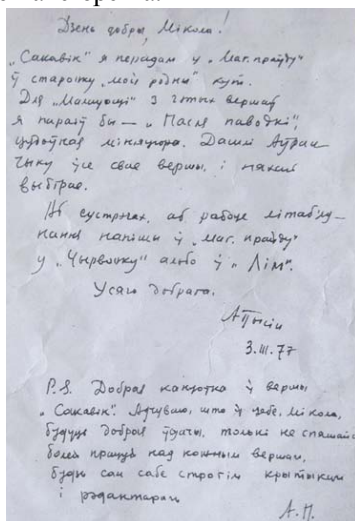 Дзень добры, Мікола!
„Сакавік" я перадам у „Маг. праўду"
ў старонку „мой родны кут".
Для „Маладосці" з гэтых вершаў
я параіў бы — „Пасля паводкі",
цудоўная мініяцюра. Дашлі Аўрам-
чыку ўсе свае вершы, і няхай
выбірае.
Аб сустрэчах, аб рабоце літаб'яд-
нання напішы ў „Маг. праўду"
у „Чырвонку" альбо ў „Лім".
Усяго добрага.
А Пысін
3.III.77
P.S. Добрая канцоўка ў вершы
„Сакавік". Адчуваю, што ў цябе, Мікола,
будуць добрыя ўдачы, толькі не спяшай
болей працуй над кожным вершам,
будзь сам сабе строгім крытыкам
і рэдактарам
А. П.